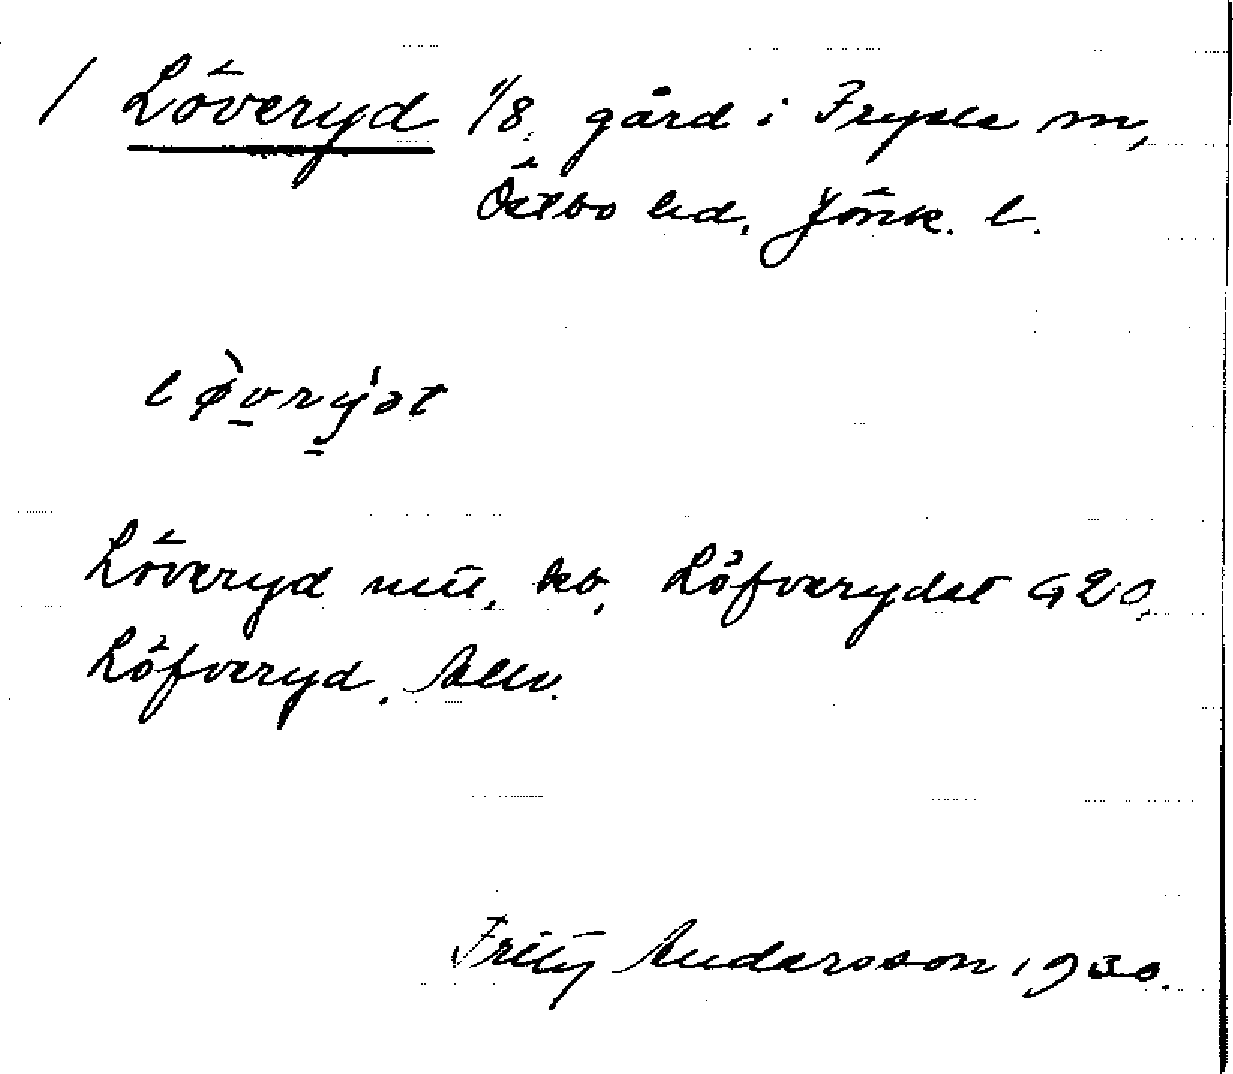 / Löveryd 1/8, gård i Fryele sn,
Östbo hd, Jönk. l.
løvrýət
Löveryd mtl, kb, Löfverydet G20,
Löfveryd.
Fritz Andersson 1930.